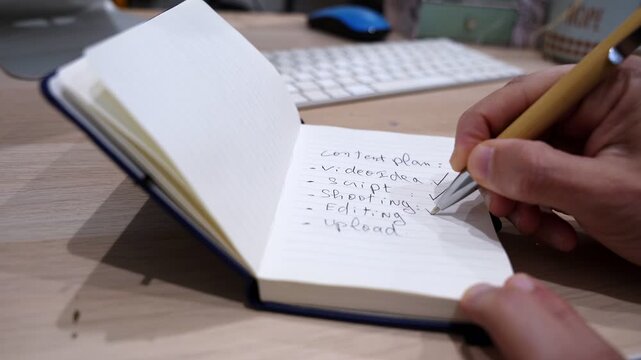 content plan:
- Videosdea: ✓
- Script : ✓
- Shooting: ✓
- Editing
- Upload